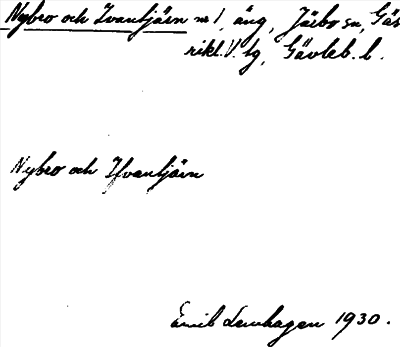 Nybro och Ivantjärn nr 1, äng, Järbo sn, Gäs
rikl. V. tg, Gävleb. l.
Nybro och Ifvantjärn
Emil Lenhagen 1930.